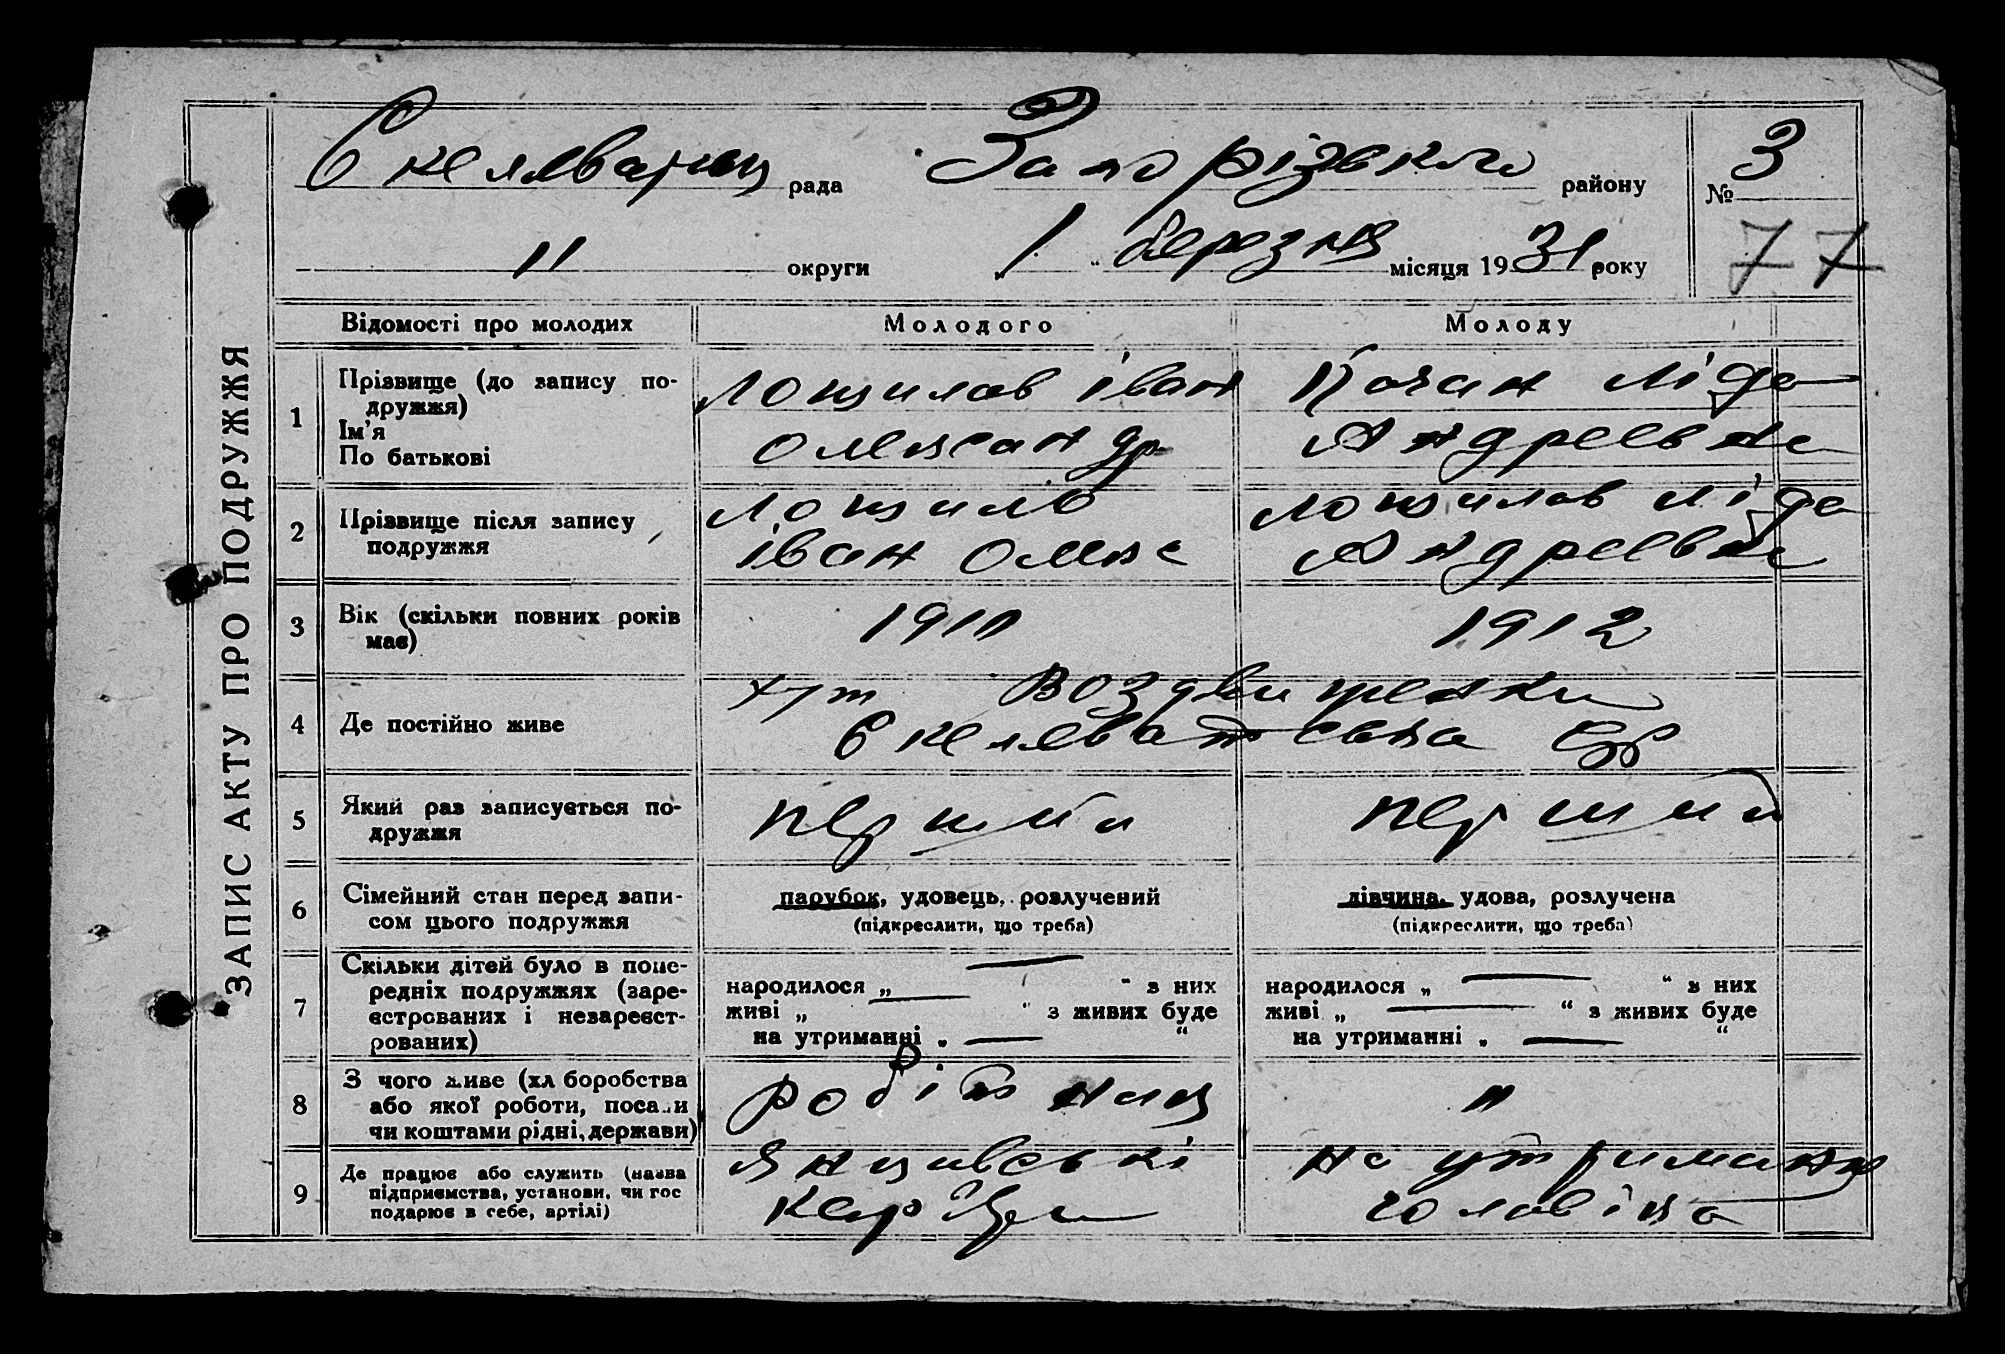 ЗАПИС АКТУ ПРО ПОДРУЖЖЯ
рада Запорізького району № 3
" округи „1“ березня місяця 1931 року 77
Відомості про молодих Молодого Молоду
1 Прізвище (до запису по-
дружжя)
Ім'я
По батькові
Лощилов Іван
Олександр
Кочан Ліда
Андреевна
2 Прізвище після запису
подружжя
Лощилов
Іван Олекс
Лощилов Ліда
Андреевна
3 Вік (скільки повних років
має)
1911
1912
4 Де постійно живе
хут Воздвиженки
Скелеватська с/р
5 Який раз записується по-
дружжя
перший
перший
6 Сімейний стан перед запи-
сом цього подружжя
парубок, удовець, розлучений
(підкреслити, що треба)
дівчина, удова, розлучена
(підкреслити, що треба)
7 Скільки дітей було в попе-
редніх подружжях (заре-
єстрованих і незареєст-
рованих)
народилося „ — “ з них
живі „ — “ з живих буде
на утриманні „ — “
народилося „ — “ з них
живі „ — “ з живих буде
на утриманні „ — “
8 З чого живе (хліборобства
або якої роботи, посади
чи коштами рідні, держави)
робітник
"
9 Де працює або служить (назва
підприємства, установи, чи гос
подарює в себе, артілі)
Янцивські
кар'єри
на утриманн
чоловіка